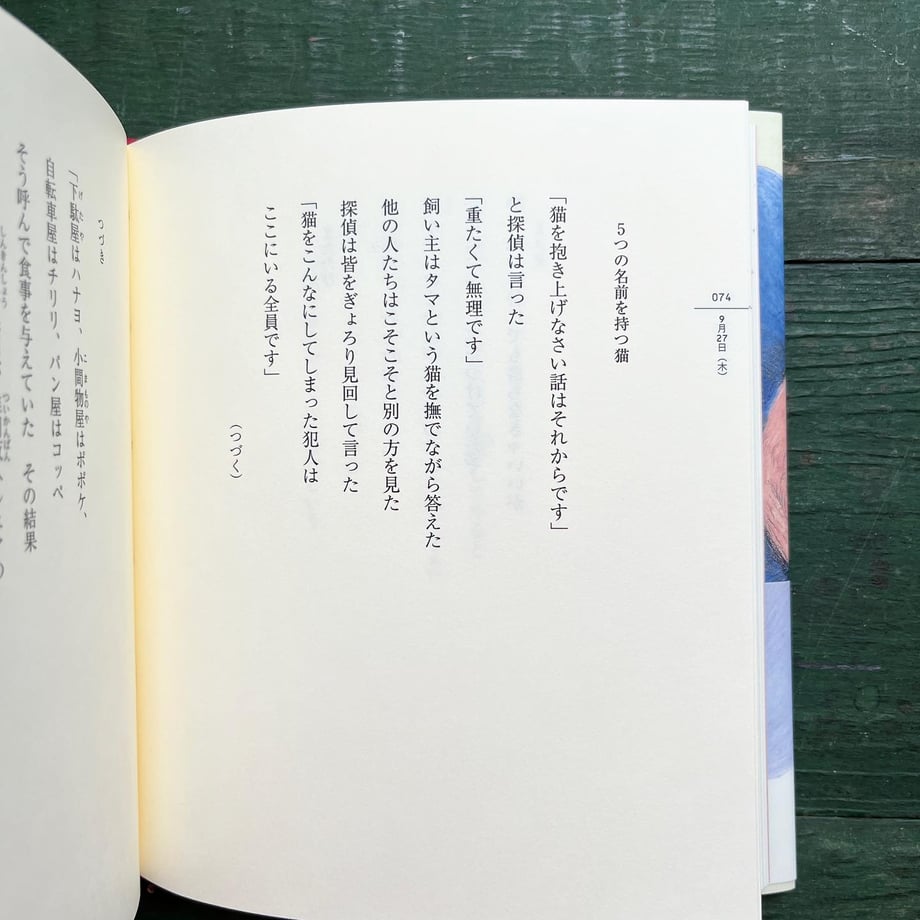 074
9月27日(木)
5つの名前を持つ猫
「猫を抱き上げなさい話はそれからです」
と探偵は言った
「重たくて無理です」
飼い主はタマという猫を撫でながら答えた
他の人たちはこそこそと別の方を見た
探偵は皆をぎょろり見回して言った
「猫をこんなにしてしまった犯人は
ここにいる全員です」
(つづく)
つづき
「下駄屋はハナヨ、小間物屋はポポケ、
自転車屋はチリリ、パン屋はコッペ
そう呼んで食事を与えていた その結果